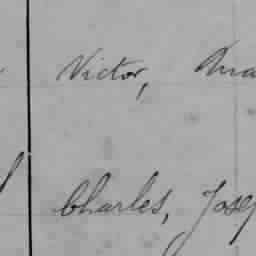 Victor,
Charles, Josep